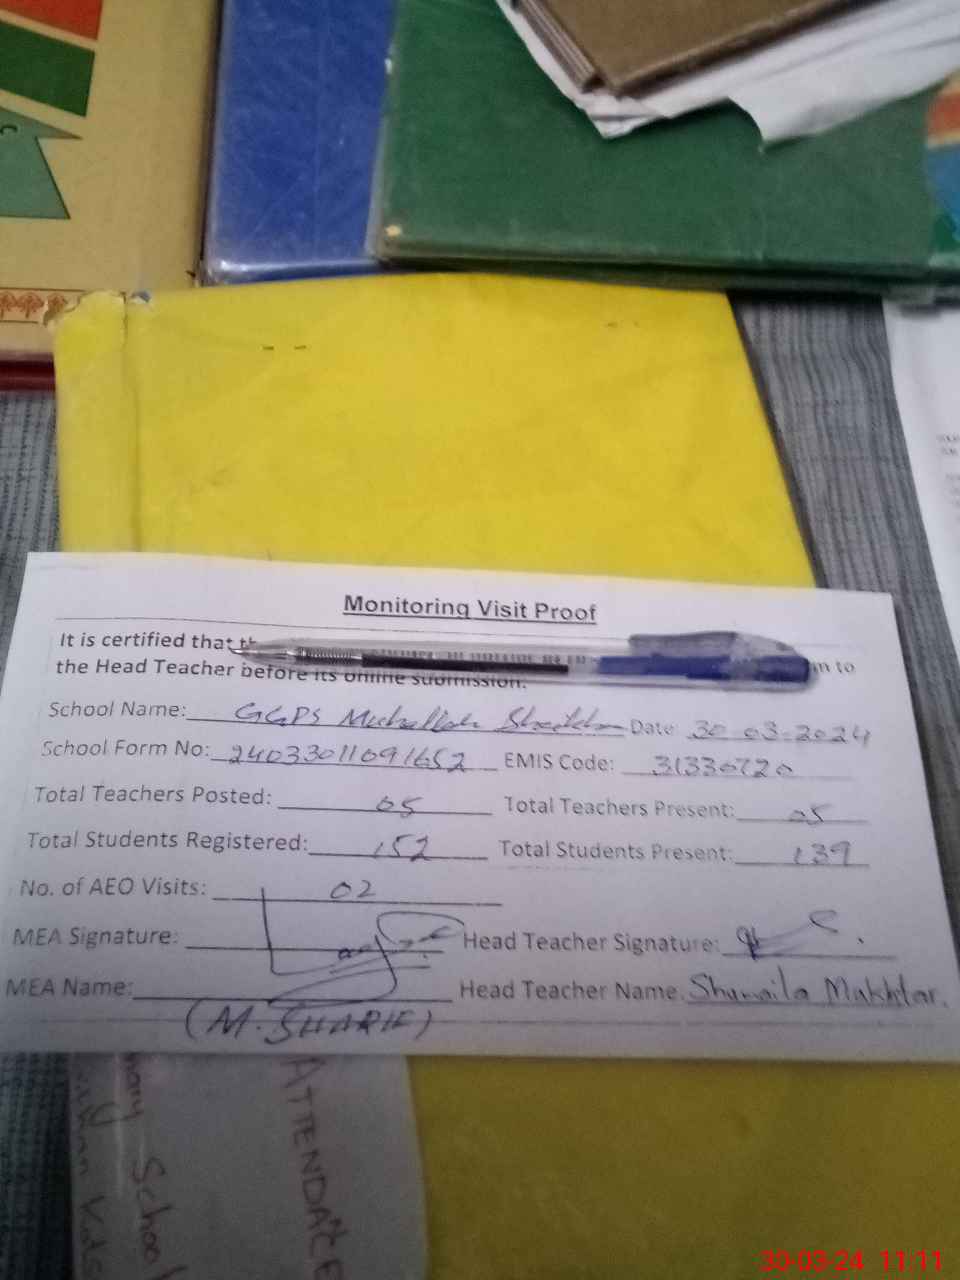 Monitoring Visit Proof
It is certified that to
the Head Teacher before its online submission.
School Name: GGPS Muhallah Date 30-03-2024
School Form No: 24033011091652 EMIS Code: 31330720
Total Teachers Posted: 05 Total Teachers Present: 05
Total Students Registered: 152 Total Students Present: 139
No. of AEO Visits: 02
MEA Signature: Head Teacher Signature:
MEA Name: Head Teacher Name. Shumaila Mukhtar.
(M. SHARIF)
ATTENDACE
School
30-03-24 11:11